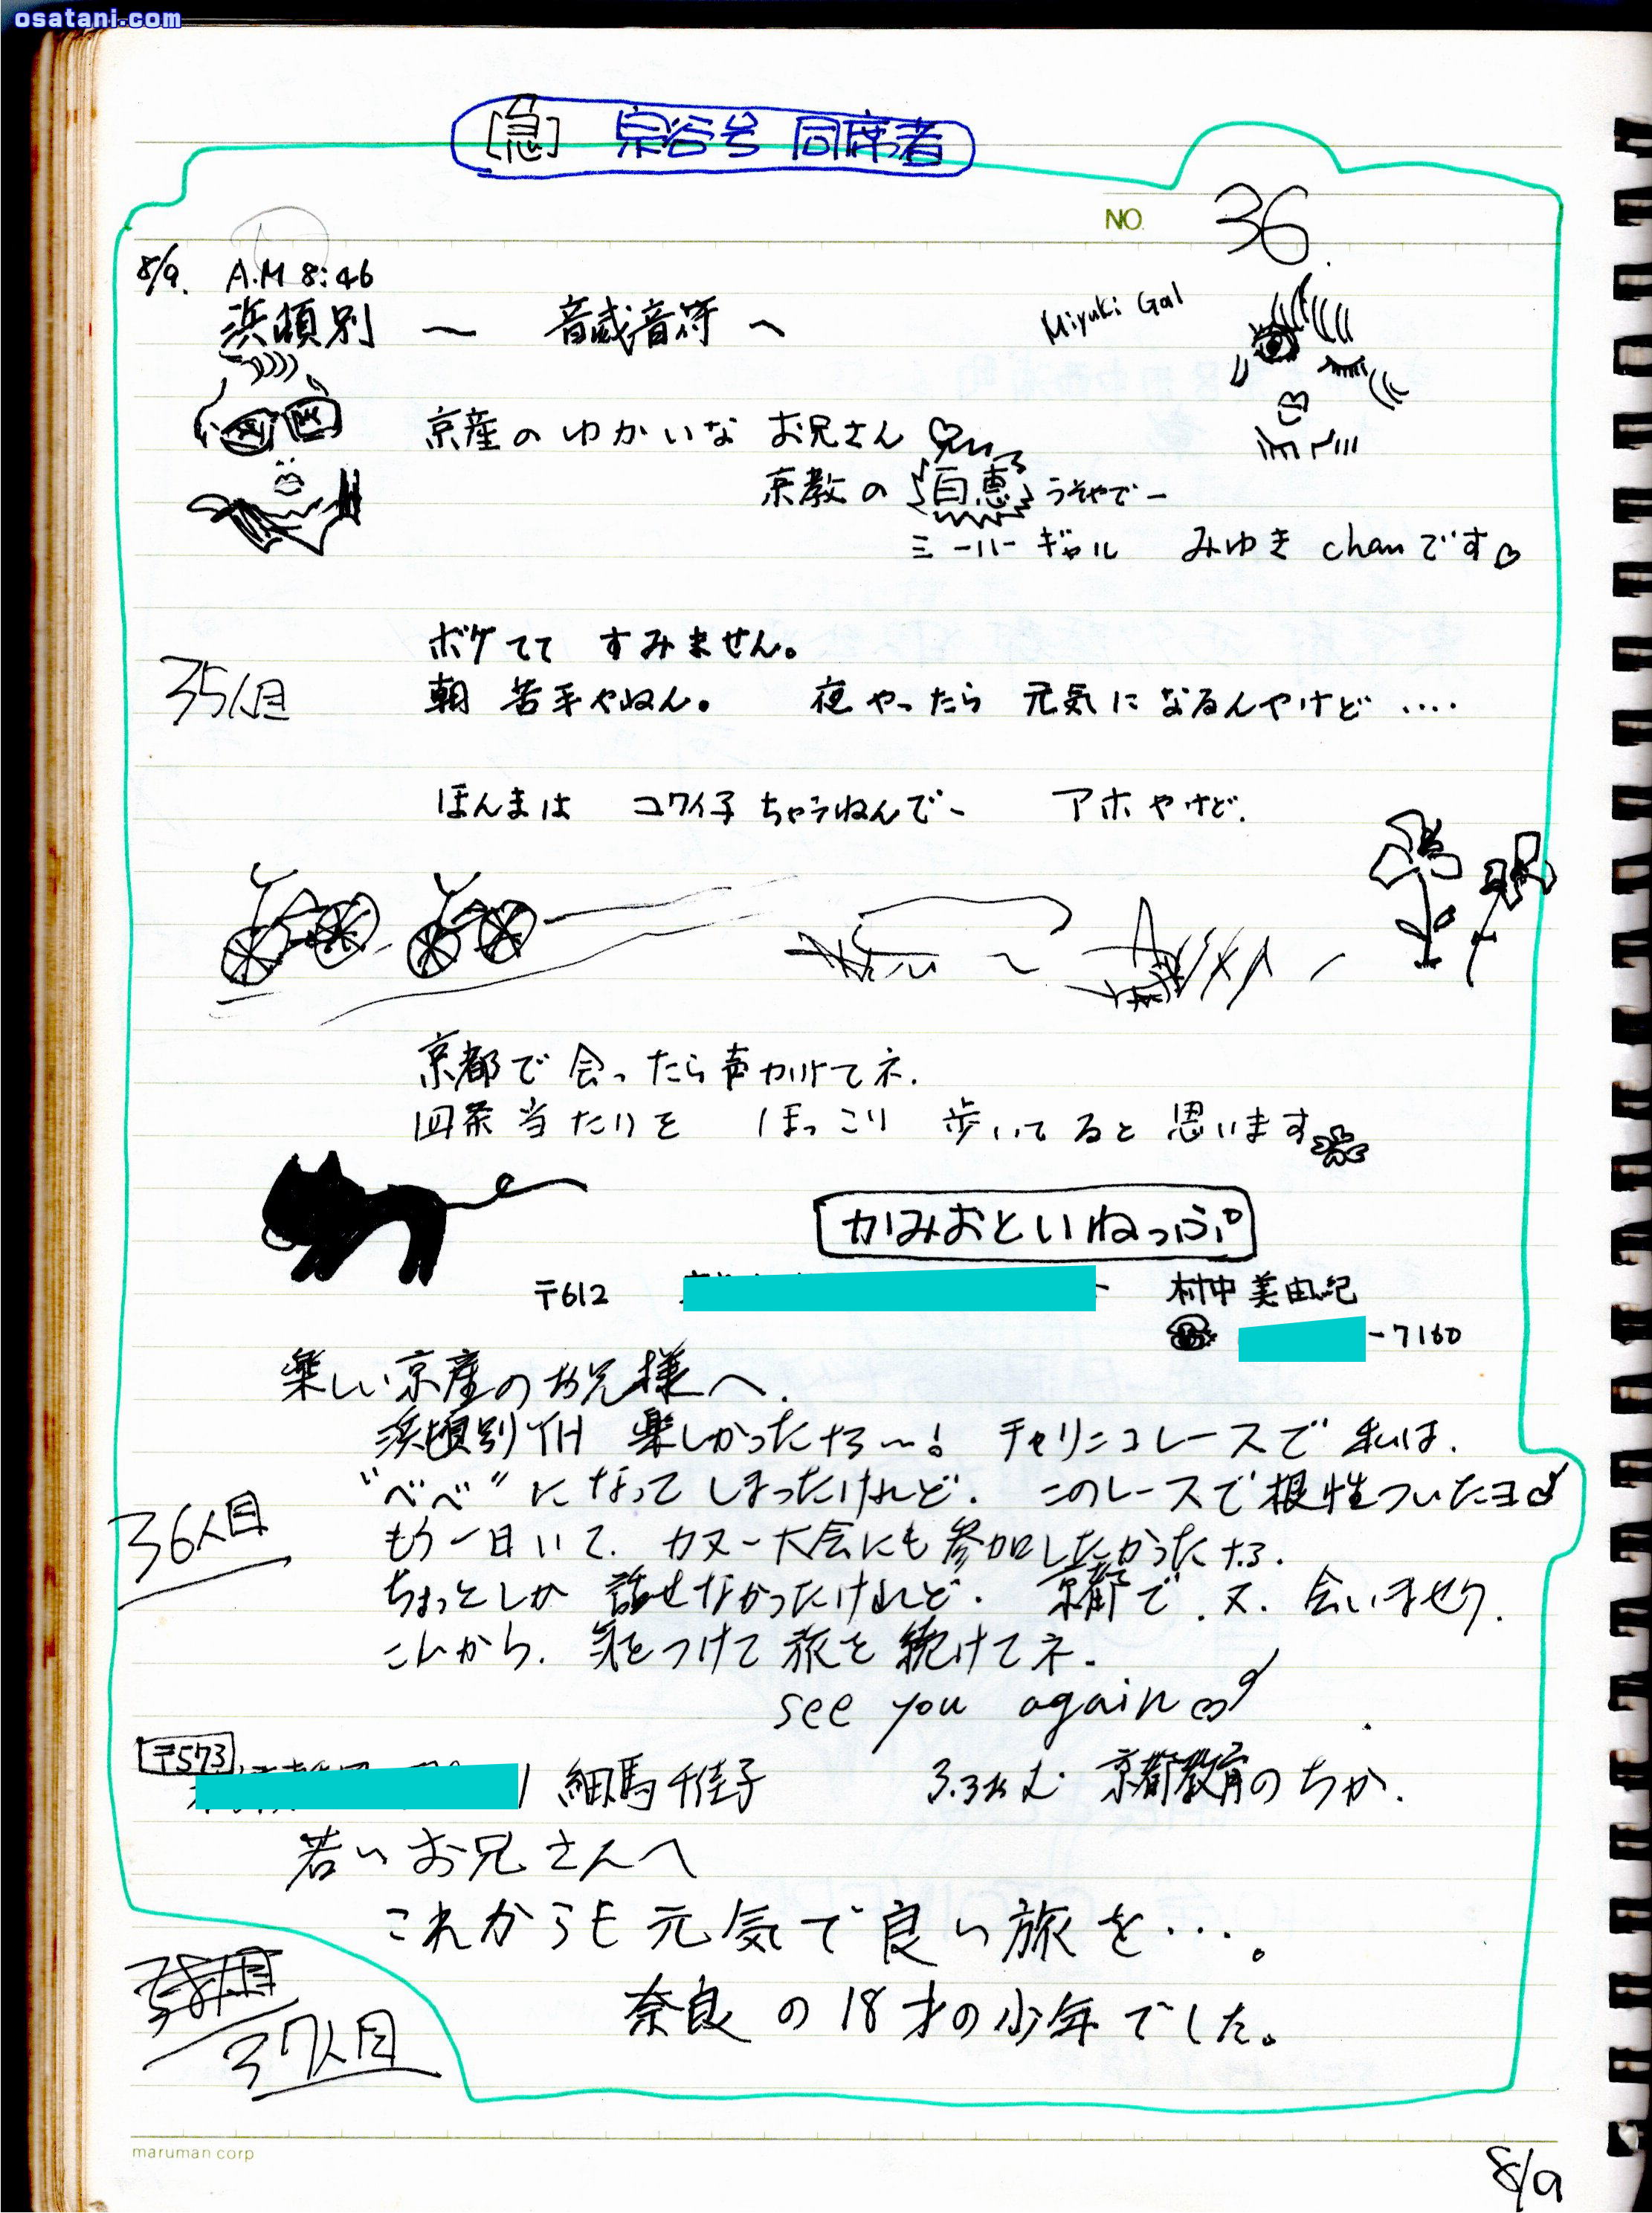 osatani.com
[急] 宗谷号 同席者
NO. 36
8/9. A.M 8:46
浜頓別 〜 音威音符へ
Miyuki Gal
京産のゆかいな お兄さん♡
京教の 百恵 うそやでー
ミーハーギャル みゆき chanです♡
35人目
ボケてて すみません。
朝 苦手やねん。 夜やったら 元気になるんやけど ‥‥
ほんまは コワイ子ちゃうねんでー アホやけど.
京都で 会ったら声かけてネ.
四条当たりを ほっこり 歩いてると思います
かみおといねっぷ
〒612 村中美由紀
-7160
楽しい京産のお兄様へ.
浜頓別YH 楽しかったナァ〜! チャリンコレースで 私は.
"べべ"になってしまったけれど. このレースで根性ついたヨ
36人目
もう一日いて. カヌー大会にも参加したかったナァ.
ちょっとしか 話せなかったけれど. 京都で.又.会いませう.
こんから. 気をつけて 旅を続けてネ.
see you again
〒573
細馬千佳子 京都教育のちか.
若いお兄さんへ
これからも元気で良い旅を…。
奈良の18才の少年でした。
37人目
maruman corp
8/9